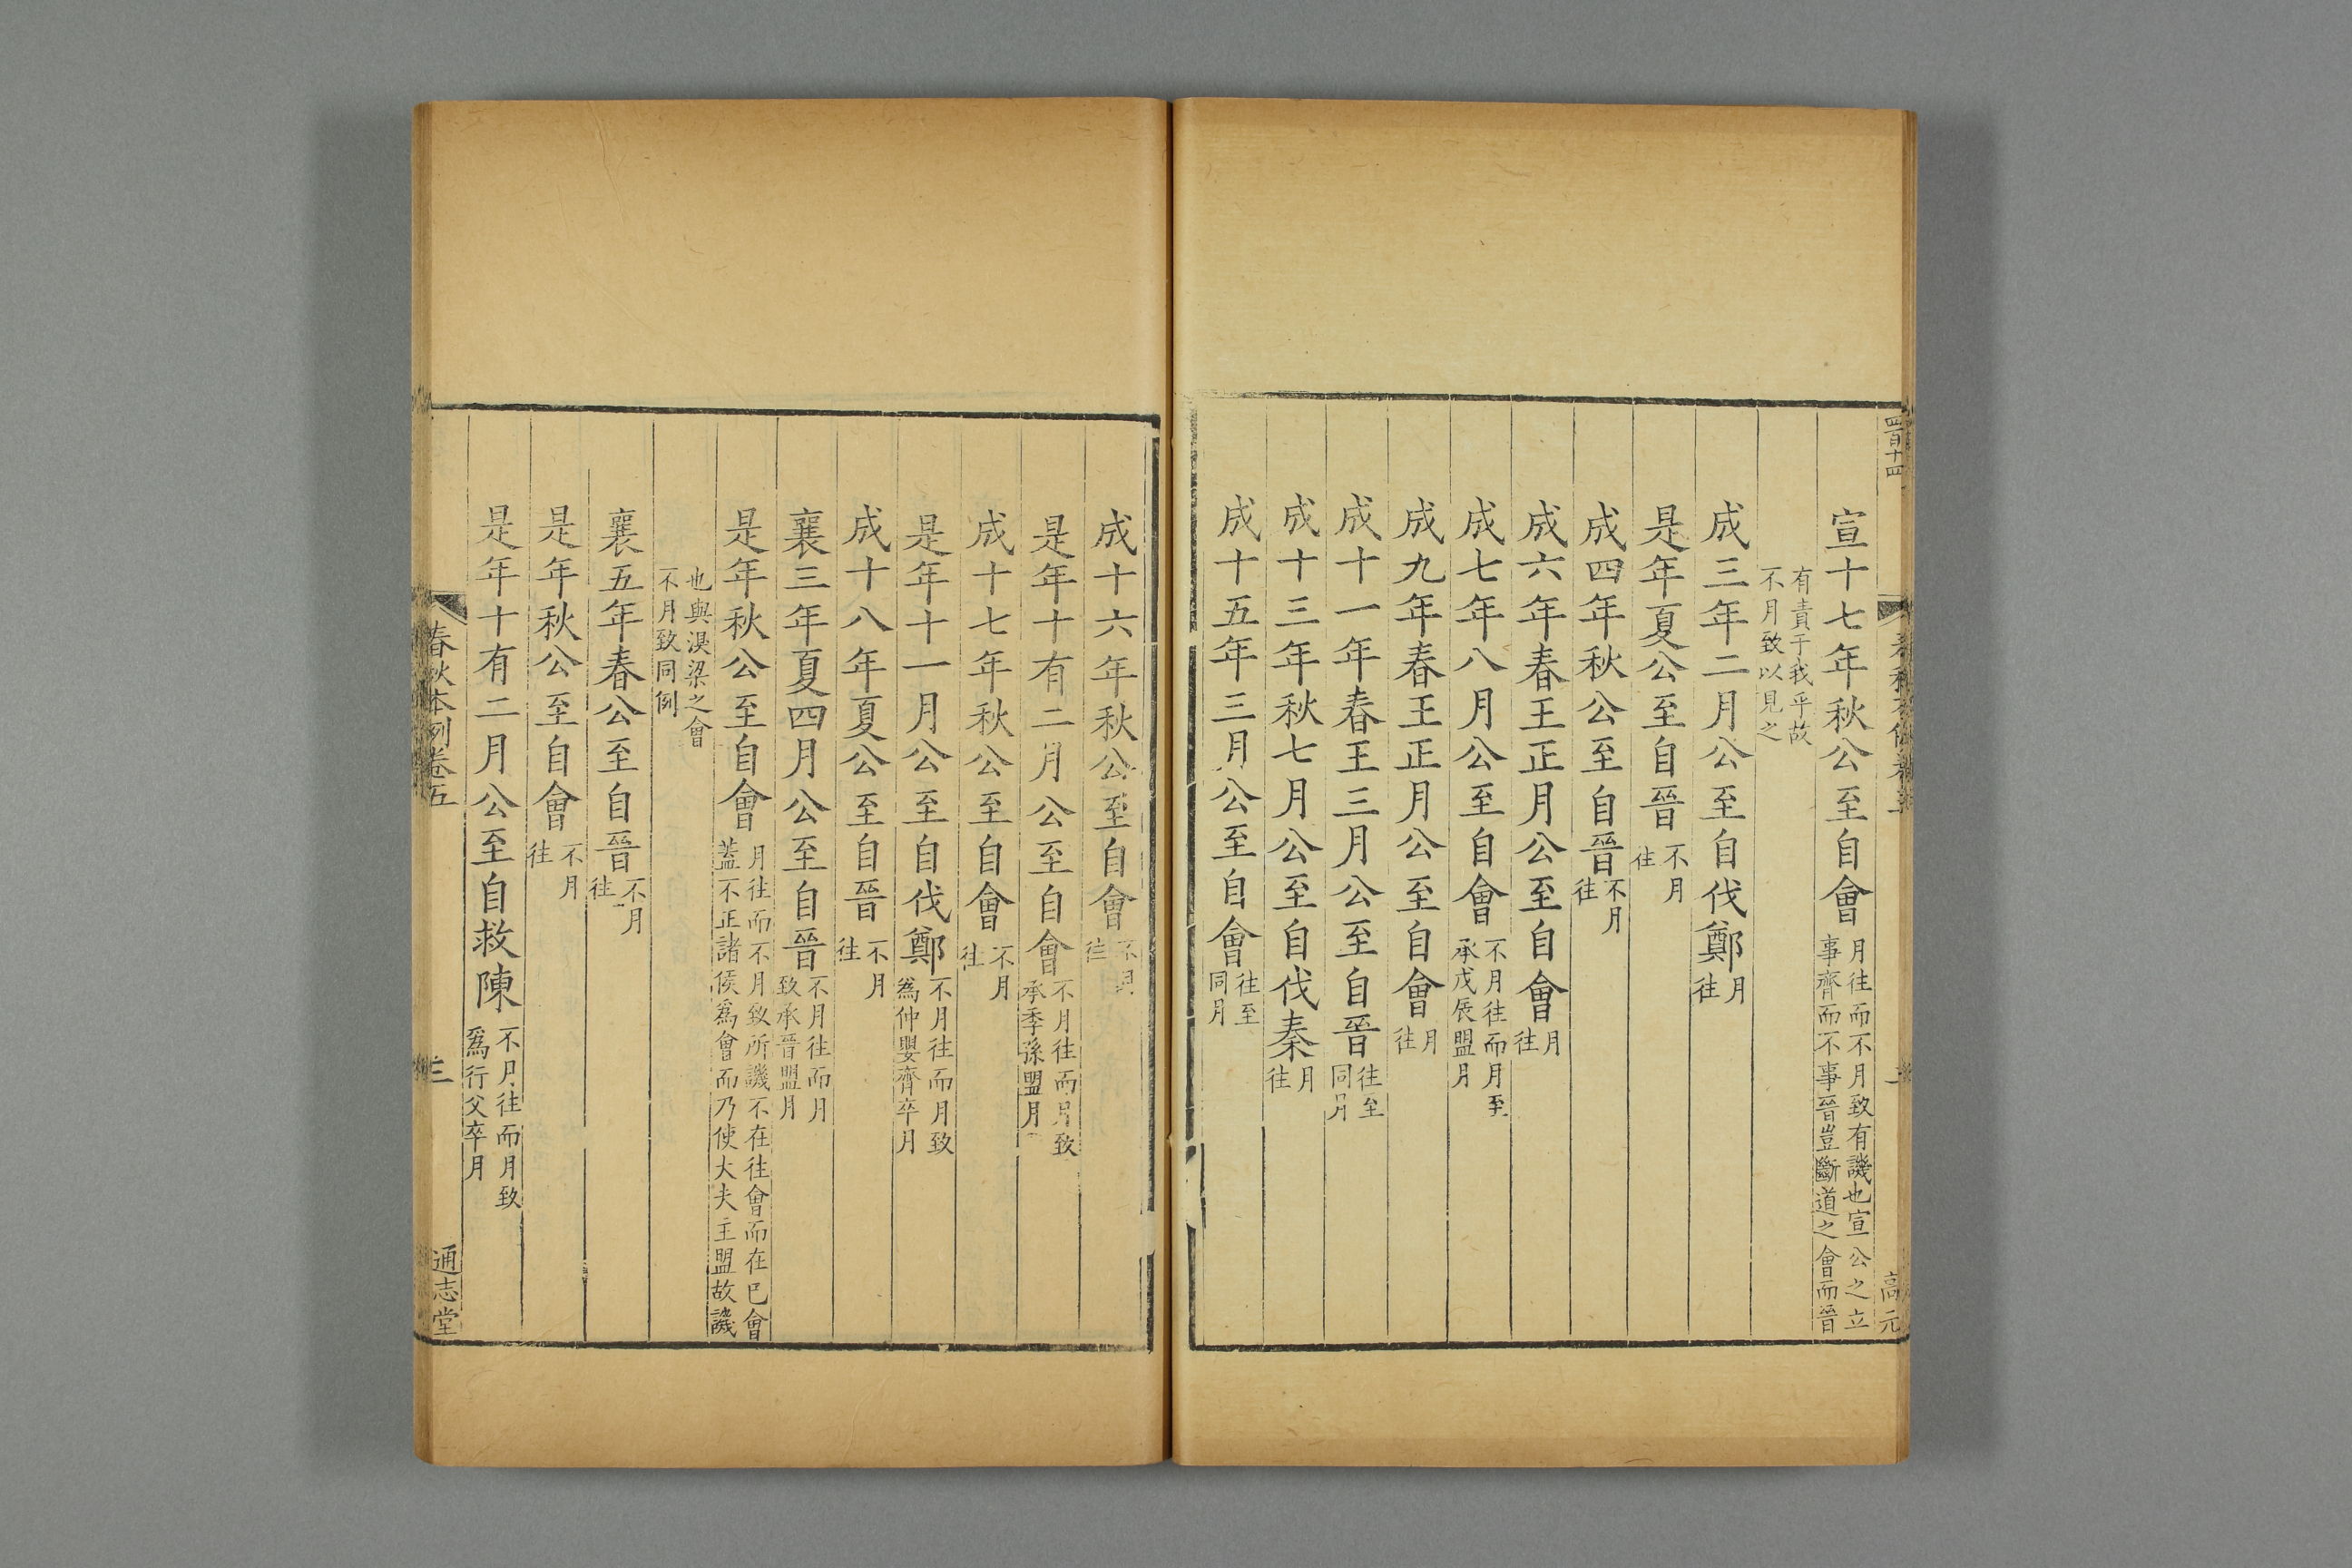 四百十四
高元
宣十七年秋公至自會月往而不月致有譏也宣公之立事齊而不事晉豈斷道之會而晉
有責于我乎故不月致以見之
成三年二月公至自伐鄭月往
是年夏公至自晉不月往
成四年秋公至自晉不月往
成六年春王正月公至自會月往
成七年八月公至自會不月往而月至承戊辰盟月
成九年春王正月公至自會月往
成十一年春王三月公至自晉往至同月
成十三年秋七月公至自伐秦月往
成十五年三月公至自會往至同月
成十六年秋公至自會不月往
是年十有二月公至自會不月往而月致承季孫盟月
成十七年秋公至自會不月往
是年十一月公至自伐鄭不月往而月致爲仲嬰齊卒月
成十八年夏公至自晉不月往
襄三年夏四月公至自晉不月往而月致承晉盟月
是年秋公至自會月往而不月致所譏不在往會而在巳會蓋不正諸侯爲會而乃使大夫主盟故譏
也與湨梁之會不月致同例
襄五年春公至自晉不月往
是年秋公至自會不月往
是年十有二月公至自救陳不月往而月致爲行父卒月
春秋本例卷五
三
通志堂